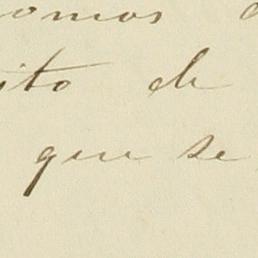 omos
ito de
que se